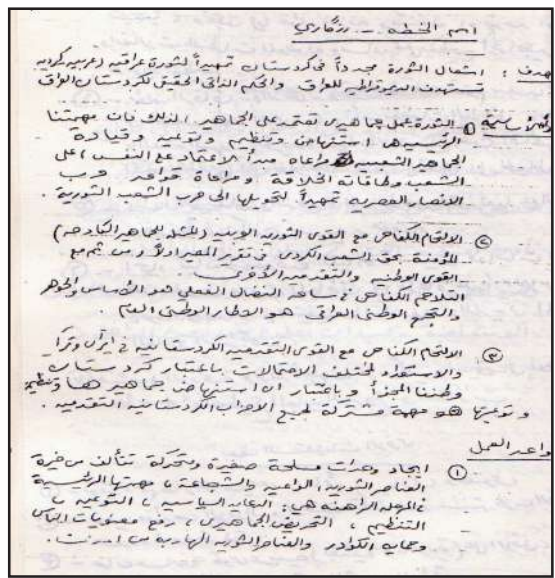 اسم الخطه - رزگاري
هدف : اشعال الثورة مجدداً في كردستان تمهيداً لثورة عراقية (عربيه كرديه
تستهدف الديمقراطية للعراق والحكم الذاتي الحقيقي لكردستان العراق
① الثورة عمل جماهيري تعتمد على الجماهير ، لذلك فان مهمتنا
الرئيسيه هي استنهاض وتنظيم وتوعيه وقيادة
الجماهير الشعبيه مراعاه مبدأ الاعتماد مع النفس ، على
الشعب وطاقاته الخلاقة ومراعاة قواعد حرب
الانصار العصريه تمهيداً لتحويلها الى حرب الشعب الثورية .
② الالتحام الكفاحي مع القوى الثوريه الاوليه (الممثله للجماهير الكادحه)
المؤمنة بحق الشعب الكردي في تقرير المصير اولاً ، ومن ثم مع
القوى الوطنيه والتقدميه الاخرى
التلاحم الكفاحي في ساحة النضال الفعلي هو الاساس والجوهر
والتجمع الوطني العراقي هو الاطار الوطني العام .
③ الالتحام الكفاحي مع القوى التقدميه الكردستانيه في ايران وتركيا
والاستعداد لمختلف الاحتمالات باعتبار كردستان
وطننا المجزأ و باعتبار ان استنهاض جماهيرها وتنظيمها
وتوعيتها هو مهمة مشتركة لجميع الاحزاب الكردستانيه التقدميه .
واعد العمل
① ايجاد وحدات مسلحة صغيره ومتحركة تتألف من خيرة
العناصر الثوريه ، الواعيه والشجاعة ، مهمتها الرئيسية
في المرحله الراهنه هي : الدعايه السياسيه ، التوعيه ،
التنظيم ، التحريض الجماهيري ، رفع معنويات الناس
وحمايه الكوادر والعناصر الثوريه الهاربه من